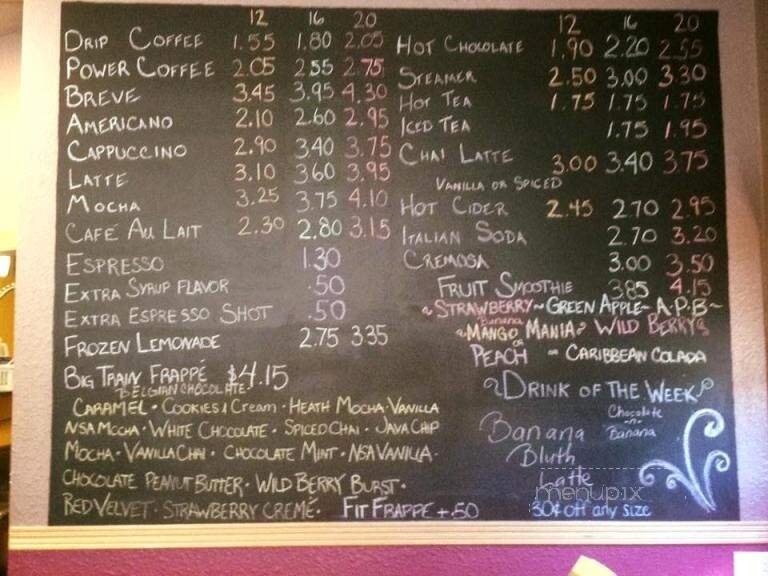 12 16 20
DRIP COFFEE 1.55 1.80 2.05
POWER COFFEE 2.05 2.55 2.75
BREVE 3.45 3.95 4.30
AMERICANO 2.10 2.60 2.95
CAPPUCCINO 2.90 3.40 3.75
LATTE 3.10 3.60 3.95
MOCHA 3.25 3.75 4.10
CAFE AU LAIT 2.30 2.80 3.15
ESPRESSO 1.30
EXTRA SYRUP FLAVOR .50
EXTRA ESPRESSO SHOT .50
FROZEN LEMONADE 2.75 3.35
BIG TRAIN FRAPPÉ $4.15
BELGIAN CHOCOLATE
CARAMEL • COOKIES & CREAM • HEATH MOCHA • VANILLA
NSA MOCHA • WHITE CHOCOLATE • SPICED CHAI • JAVA CHIP
MOCHA • VANILLA CHAI • CHOCOLATE MINT • NSA VANILLA •
CHOCOLATE PEANUT BUTTER • WILD BERRY BURST •
RED VELVET • STRAWBERRY CREMÉ • FIT FRAPPE + .50
12 16 20
HOT CHOCOLATE 1.90 2.20 2.55
STEAMER 2.50 3.00 3.30
HOT TEA 1.75 1.75 1.75
ICED TEA 1.75 1.95
CHAI LATTE 3.00 3.40 3.75
VANILLA OR SPICED
HOT CIDER 2.45 2.70 2.95
ITALIAN SODA 2.70 3.20
CREMOSA 3.00 3.50
FRUIT SMOOTHIE 3.85 4.15
~STRAWBERRY~GREEN APPLE~A.P.B~
Banana
~MANGO MANIA~ WILD BERRY~
OR
PEACH ~ CARIBBEAN COLADA
DRINK OF THE WEEK
Chocolate
-n-
Banana
Banana
Bluth
Latte
menupix
30¢ off any size